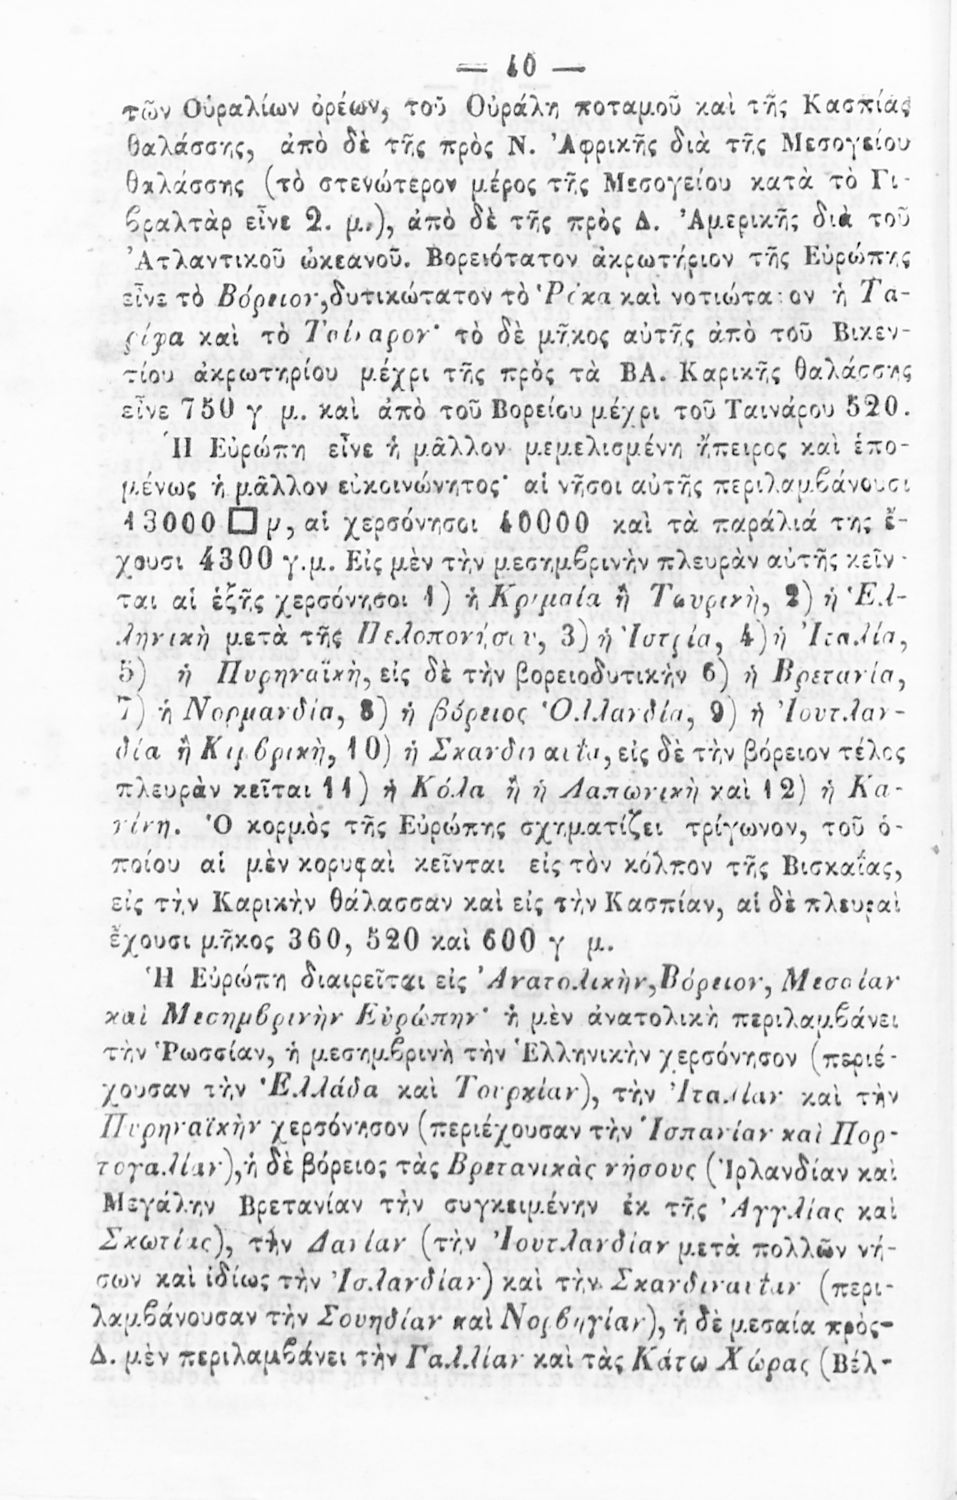 — 40 —
τῶν Οὐραλίων ὀρέων, τοῦ Οὐράλη ποταμοῦ καὶ τῆς Κασπίας
θαλάσσης, ἀπὸ δὲ τῆς πρὸς Ν. Ἀφρικῆς διὰ τῆς Μεσογείου
θαλάσσης (τὸ στενώτερον μέρος τῆς Μεσογείου κατὰ τὸ Γι-
βραλτὰρ εἶνε 2. μ.), ἀπὸ δὲ τῆς πρὸς Δ. Ἀμερικῆς διὰ τοῦ
Ἀτλαντικοῦ ὠκεανοῦ. Βορειότατον ἀκρωτήριον τῆς Εὐρώπης
εἶνε τὸ Βόρειον, δυτικώτατον τὸ Ῥόκα καὶ νοτιώτατον ἡ Τα-
ρίφα καὶ τὸ Ταίναρον· τὸ δὲ μῆκος αὐτῆς ἀπὸ τοῦ Βικεν-
τίου ἀκρωτηρίου μέχρι τῆς πρὸς τὰ ΒΑ. Καρικῆς θαλάσσης
εἶνε 750 γ μ. καὶ ἀπὸ τοῦ Βορείου μέχρι τοῦ Ταινάρου 520.
Ἡ Εὐρώπη εἶνε ἡ μᾶλλον μεμελισμένη ἤπειρος καὶ ἑπο-
μένως ἡ μᾶλλον εὐκοινώνητος· αἱ νῆσοι αὐτῆς περιλαμβάνουσι
13000 □ μ, αἱ χερσόνησοι 40000 καὶ τὰ παράλιά της ἔ-
χουσι 4300 γ.μ. Εἰς μὲν τὴν μεσημβρινὴν πλευρὰν αὐτῆς κεῖν-
ται αἱ ἑξῆς χερσόνησοι 1) ἡ Κριμαία ἢ Ταυρικὴ, 2) ἡ Ἑλ-
ληνικὴ μετὰ τῆς Πελοπονήσου, 3) ἡ Ἰστρία, 4) ἡ Ἰταλία,
5) ἡ Πυρηναϊκὴ, εἰς δὲ τὴν βορειοδυτικὴν 6) ἡ Βρετανία,
7) ἡ Νορμανδία, 8) ἡ βόρειος Ὀλλανδία, 9) ἡ Ἰουτλαν-
δία ἢ Κιμβρικὴ, 10) ἡ Σκανδιναυΐα, εἰς δὲ τὴν βόρειον τέλος
πλευρὰν κεῖται 11) ἡ Κόλα ἢ ἡ Λαπωνικὴ καὶ 12) ἡ Κα-
νίνη. Ὁ κορμὸς τῆς Εὐρώπης σχηματίζει τρίγωνον, τοῦ ὁ-
ποίου αἱ μὲν κορυφαὶ κεῖνται εἰς τὸν κόλπον τῆς Βισκαΐας,
εἰς τὴν Καρικὴν θάλασσαν καὶ εἰς τὴν Κασπίαν, αἱ δὲ πλευραὶ
ἔχουσι μῆκος 360, 520 καὶ 600 γ μ.
Ἡ Εὐρώπη διαιρεῖται εἰς Ἀνατολικὴν, Βόρειον, Μεσαίαν
καὶ Μεσημβρινὴν Εὐρώπην· ἡ μὲν ἀνατολικὴ περιλαμβάνει
τὴν Ῥωσσίαν, ἡ μεσημβρινὴ τὴν Ἑλληνικὴν χερσόνησον (περιέ-
χουσαν τὴν Ἑλλάδα καὶ Τουρκίαν), τὴν Ἰταλίαν καὶ τὴν
Πυρηναϊκὴν χερσόνησον (περιέχουσαν τὴν Ἰσπανίαν καὶ Πορ-
τογαλίαν), ἡ δὲ βόρειος τὰς Βρετανικὰς νήσους (Ἰρλανδίαν καὶ
Μεγάλην Βρετανίαν τὴν συγκειμένην ἐκ τῆς Ἀγγλίας καὶ
Σκωτίας), τὴν Δανίαν (τὴν Ἰουτλανδίαν μετὰ πολλῶν νή-
σων καὶ ἰδίως τὴν Ἰσλανδίαν) καὶ τὴν Σκανδιναυΐαν (περι-
λαμβάνουσαν τὴν Σουηδίαν καὶ Νορβηγίαν), ἡ δὲ μεσαία πρὸς-
Δ. μὲν περιλαμβάνει τὴν Γαλλίαν καὶ τὰς Κάτω Χώρας (Βέλ-